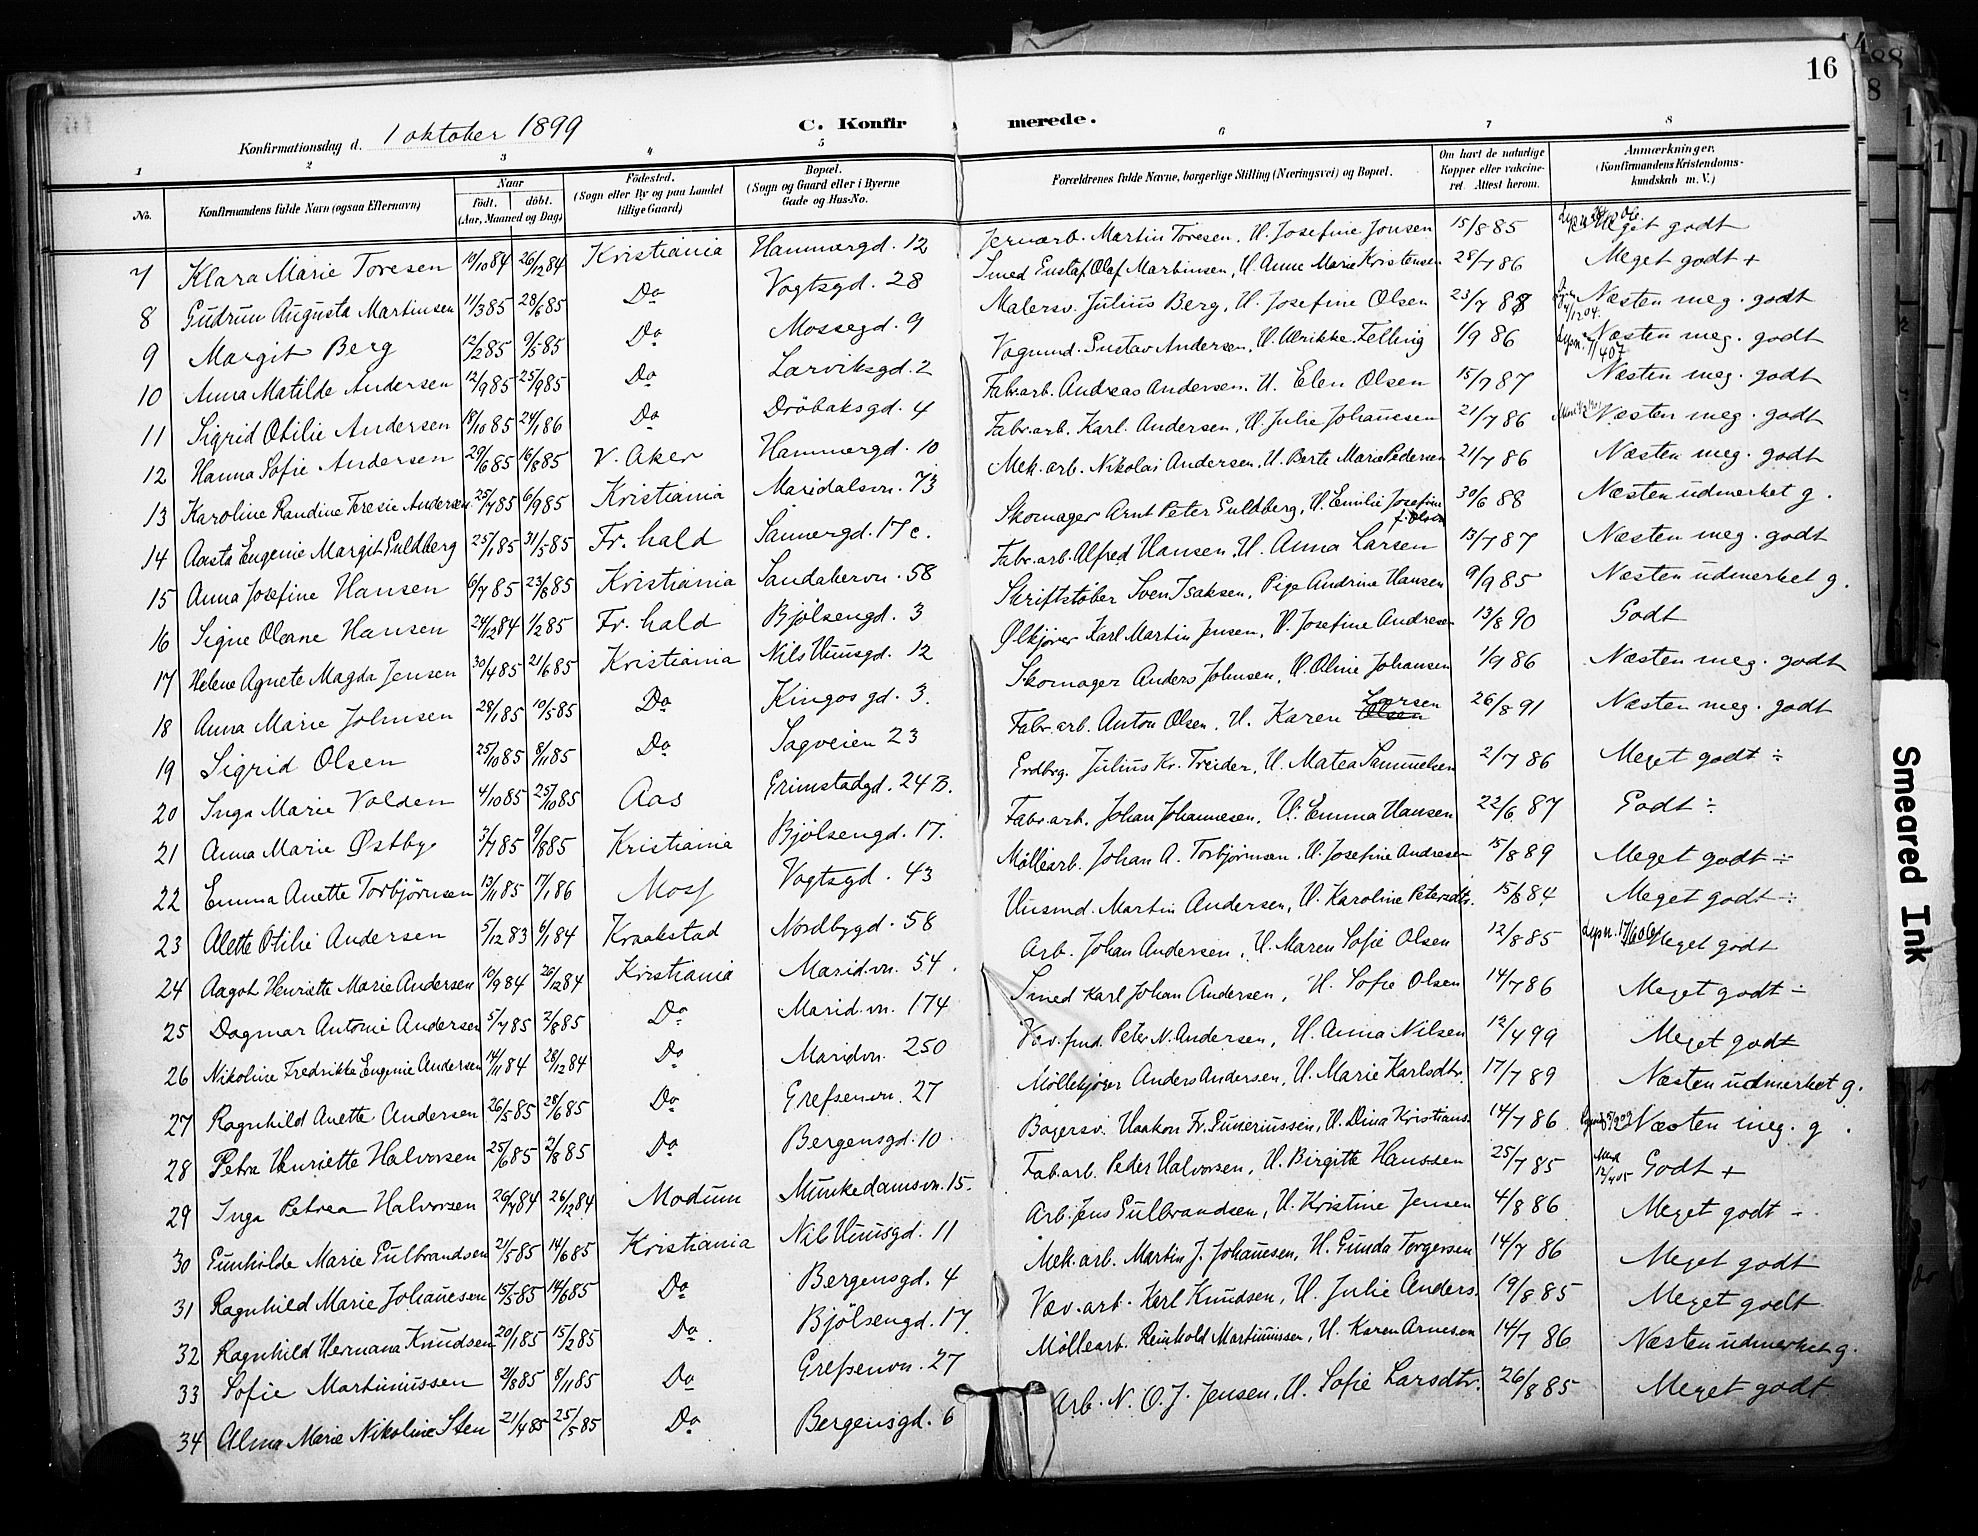 16
Konfirmationsdag d. 1 oktober 1899 C. Konfirmerede.
1 2 3 4 5 6 7 8
No. Konfirmandens fulde Navn (ogsaa Efternavn) Naar födt. döbt. (Aar, Maaned og Dag) Födested. (Sogn eller By og paa Landet tillige Gaard) Bopæl. (Sogn og Gaard eller i Byerne Gade og Hus-No. Forældrenes fulde Navne, borgerlige Stilling (Næringsvei) og Bopæl. Om havt de naturlige Kopper eller vakcineret. Attest herom. Anmærkninger. (Konfirmandens Kristendomskundskab m. V.)
7 Klara Marie Toresen 19/10 84 26/12 84 Kristiania Hammergd. 12 Jernarb. Martin Toresen, H. Josefine Jonsen 15/8 85 Meget godt
8 Gudrun Augusta Martinsen 11/3 85 28/6 85 Do Vogtsgd. 28 Smed Gustaf Olaf Martinsen, H. Anne Marie Kristensen 28/7 86 Meget godt +
9 Margit Berg 12/2 85 9/5 85 Do Mossegd. 9 Malersv. Julius Berg, H. Josefine Olsen 23/7 88 Næsten meg. godt
10 Anna Matilde Andersen 12/9 85 25/9 85 Do Larviksgd. 2 Vognmd. Gustav Andersen, H. Ulrikke Felling 1/9 86 Næsten meg. godt
11 Sigrid Otilie Andersen 18/10 85 24/1 86 Do Dröbaksgd. 4 Fabr.arb. Andreas Andersen. H. Elen Olsen 15/7 87 Næsten meg. godt
12 Hanna Sofie Andersen 29/6 85 16/8 85 V. Aker Hammergd. 10 Fabr.arb. Karl Andersen, H. Julie Johannesen 21/7 86 Næsten meg. godt
13 Karoline Randine Teresie Andersen 25/7 85 6/9 85 Kristiania Maridalsvn. 73 Mek.arb. Nikolai Andersen, H. Berte Marie Pedersen 21/7 86 Næsten meg. godt
14 Aasta Eugenie Margit Guldberg 25/1 85 31/5 85 Fr.hald Sannergd. 17c. Skomager Arnt Peter Guldberg, H. Emilie Josefine f. Olsen 30/6 88 Næsten udmerket g.
15 Anna Josefine Hansen 6/7 85 23/8 85 Kristiania Sandakervn. 58 Fabr.arb. Alfred Hansen, H. Anna Larsen 13/7 87 Næsten meg. godt
16 Signe Oleane Hansen 24/12 84 1/2 85 Fr.hald Bjölsengd. 3 Skriftstöber Sven Isaksen, Pige Andrine Hansen 9/9 85 Næsten udmerket g.
17 Helene Agnete Magda Jensen 30/4 85 21/6 85 Kristiania Nils Huusgd. 12 Ølkjører Karl Martin Jensen, H. Josefine Andresen 13/8 90 Godt
18 Anna Marie Johnsen 28/1 85 10/5 85 Do Kingosgd. 3. Skomager Anders Johnsen, H. Oline Johansen 1/9 86 Næsten meg. godt
19 Sigrid Olsen 25/10 85 8/11 85 Do Sagveien 23 Fabr.arb. Anton Olsen, H. Karen Olsen Larsen 26/8 91 Næsten meg. godt
20 Inga Marie Volden 4/10 85 25/10 85 Aas Grimstadgd. 24 B. Erdbrg. Julius Kr. Treider, H. Matea Samuelsen 2/7 86 Meget godt ÷
21 Anna Marie Østby 3/7 85 9/8 85 Kristiania Bjölsengd. 17. Fabr.arb. Johan Johannesen, H. Emma Hansen 22/6 87 Godt ÷
22 Emma Anette Torbjörnsen 13/11 85 17/1 86 Moss Vogtsgd. 43 Möllearb. Johan A. Torbjörnsen. H. Josefine Andresen 15/8 89 Meget godt ÷
23 Alette Otilie Andersen 5/12 83 6/1 84 Kraakstad Nordbygd. 58 Husmd. Martin Andersen, H. Karoline Petersdtr. 15/8 84 Meget godt ÷
24 Aagot Henriette Marie Andersen 10/9 84 26/12 84 Kristiania Marid.vn. 54. Arb. Johan Andersen, H. Maren Sofie Olsen 12/8 85 Meget godt
25 Dagmar Antonie Andersen 5/7 85 2/8 85 Do Marid.vn. 174 Smed Karl Johan Andersen, H. Sofie Olsen 14/7 86 Meget godt ÷
26 Nikoline Fredrikke Eugenie Andersen 14/11 84 28/12 84 Do Maridvn. 250 Væv.fmd. Peter N. Andersen, H. Anna Nilsen 12/4 99 Meget godt
27 Ragnhild Anette Andersen 26/5 85 28/6 85 Do Grefsenvn. 27 Möllekjörer Anders Andersen, H. Marie Karlsdtr. 17/7 89 Næsten udmerket g.
28 Petra Henriette Halvorsen 25/6 85 2/8 85 Do Bergensgd. 10 Bagersv. Haakon Fr. Guneriussen, H. Dina Kristians. 14/7 86 Næsten meg. g.
29 Inga Petrea Halvorsen 26/7 84 26/12 84 Modum Munkedamsvn. 15. Fab.arb. Peder Halvorsen, H. Birgitte Hanssen 25/7 85 Godt +
30 Gunhilde Marie Gulbrandsen 21/5 85 14/6 85 Kristiania Nils Huusgd. 11 Arb. Jens Gulbrandsen, H. Kristine Jensen 4/8 86 Meget godt -
31 Ragnhild Marie Johannesen 15/5 85 14/6 85 Do Bergensgd. 4 Mek.arb. Martin J. Johannesen, H. Gunda Torgersen 14/7 86 Meget godt
32 Ragnhild Hermana Knudsen 20/1 85 15/2 85 Do Bjölsengd. 17. Væv.arb. Karl Knudsen, H. Julie Anders. 19/8 85 Meget godt
33 Sofie Martiniussen 2/8 85 8/11 85 Do Grefsenvn. 27 Möllearb. Reinhold Martiniussen, H. Karen Arnesen 14/7 86 Næsten udmerket g.
34 Alma Marie Nikoline Sten 21/4 85 25/5 85 Do Bergensgd. 6 Arb. N. O. J. Jensen, H. Sofie Larsdtr. 26/8 85 Meget godt
Smeared Ink